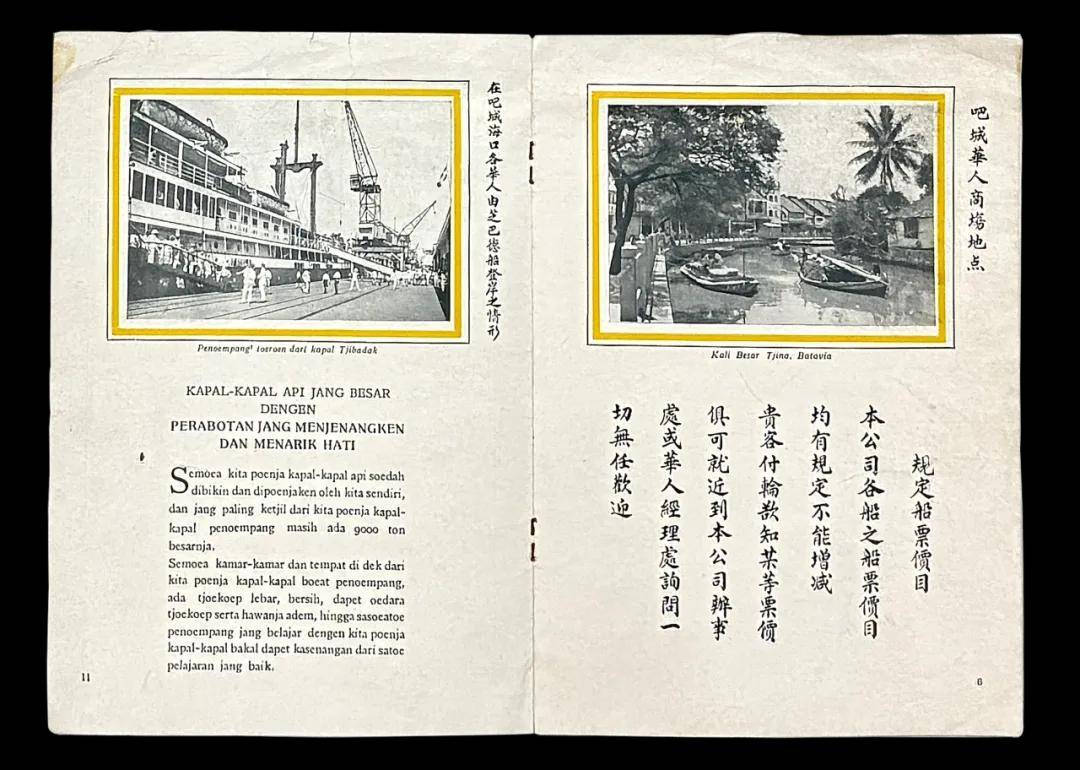 在吧城海口各華人由芝巴德船登岸之情形
Penoempang² toeroen dari kapal Tjibadak
KAPAL-KAPAL API JANG BESAR
DENGEN
PERABOTAN JANG MENJENANGKEN
DAN MENARIK HATI
Semoea kita poenja kapal-kapal api soedah
dibikin dan dipoenjaken oleh kita sendiri,
dan jang paling ketjil dari kita poenja kapal-
kapal penoempang masih ada 9000 ton
besarnja.
Semoea kamar-kamar dan tempat di dek dari
kita poenja kapal-kapal boeat penoempang,
ada tjoekoep lebar, bersih, dapet oedara
tjoekoep serta hawanja adem, hingga sasoeatoe
penoempang jang belajar dengen kita poenja
kapal-kapal bakal dapet kasenangan dari satoe
pelajaran jang baik.
11
吧城華人商塲地点
Kali Besar Tjina, Batavia
規定船票價目
本公司各船之船票價目
均有規定不能增減
貴客付輪欲知某等票價
俱可就近到本公司辦事
處或華人經理處詢問一
切無任歡迎
6